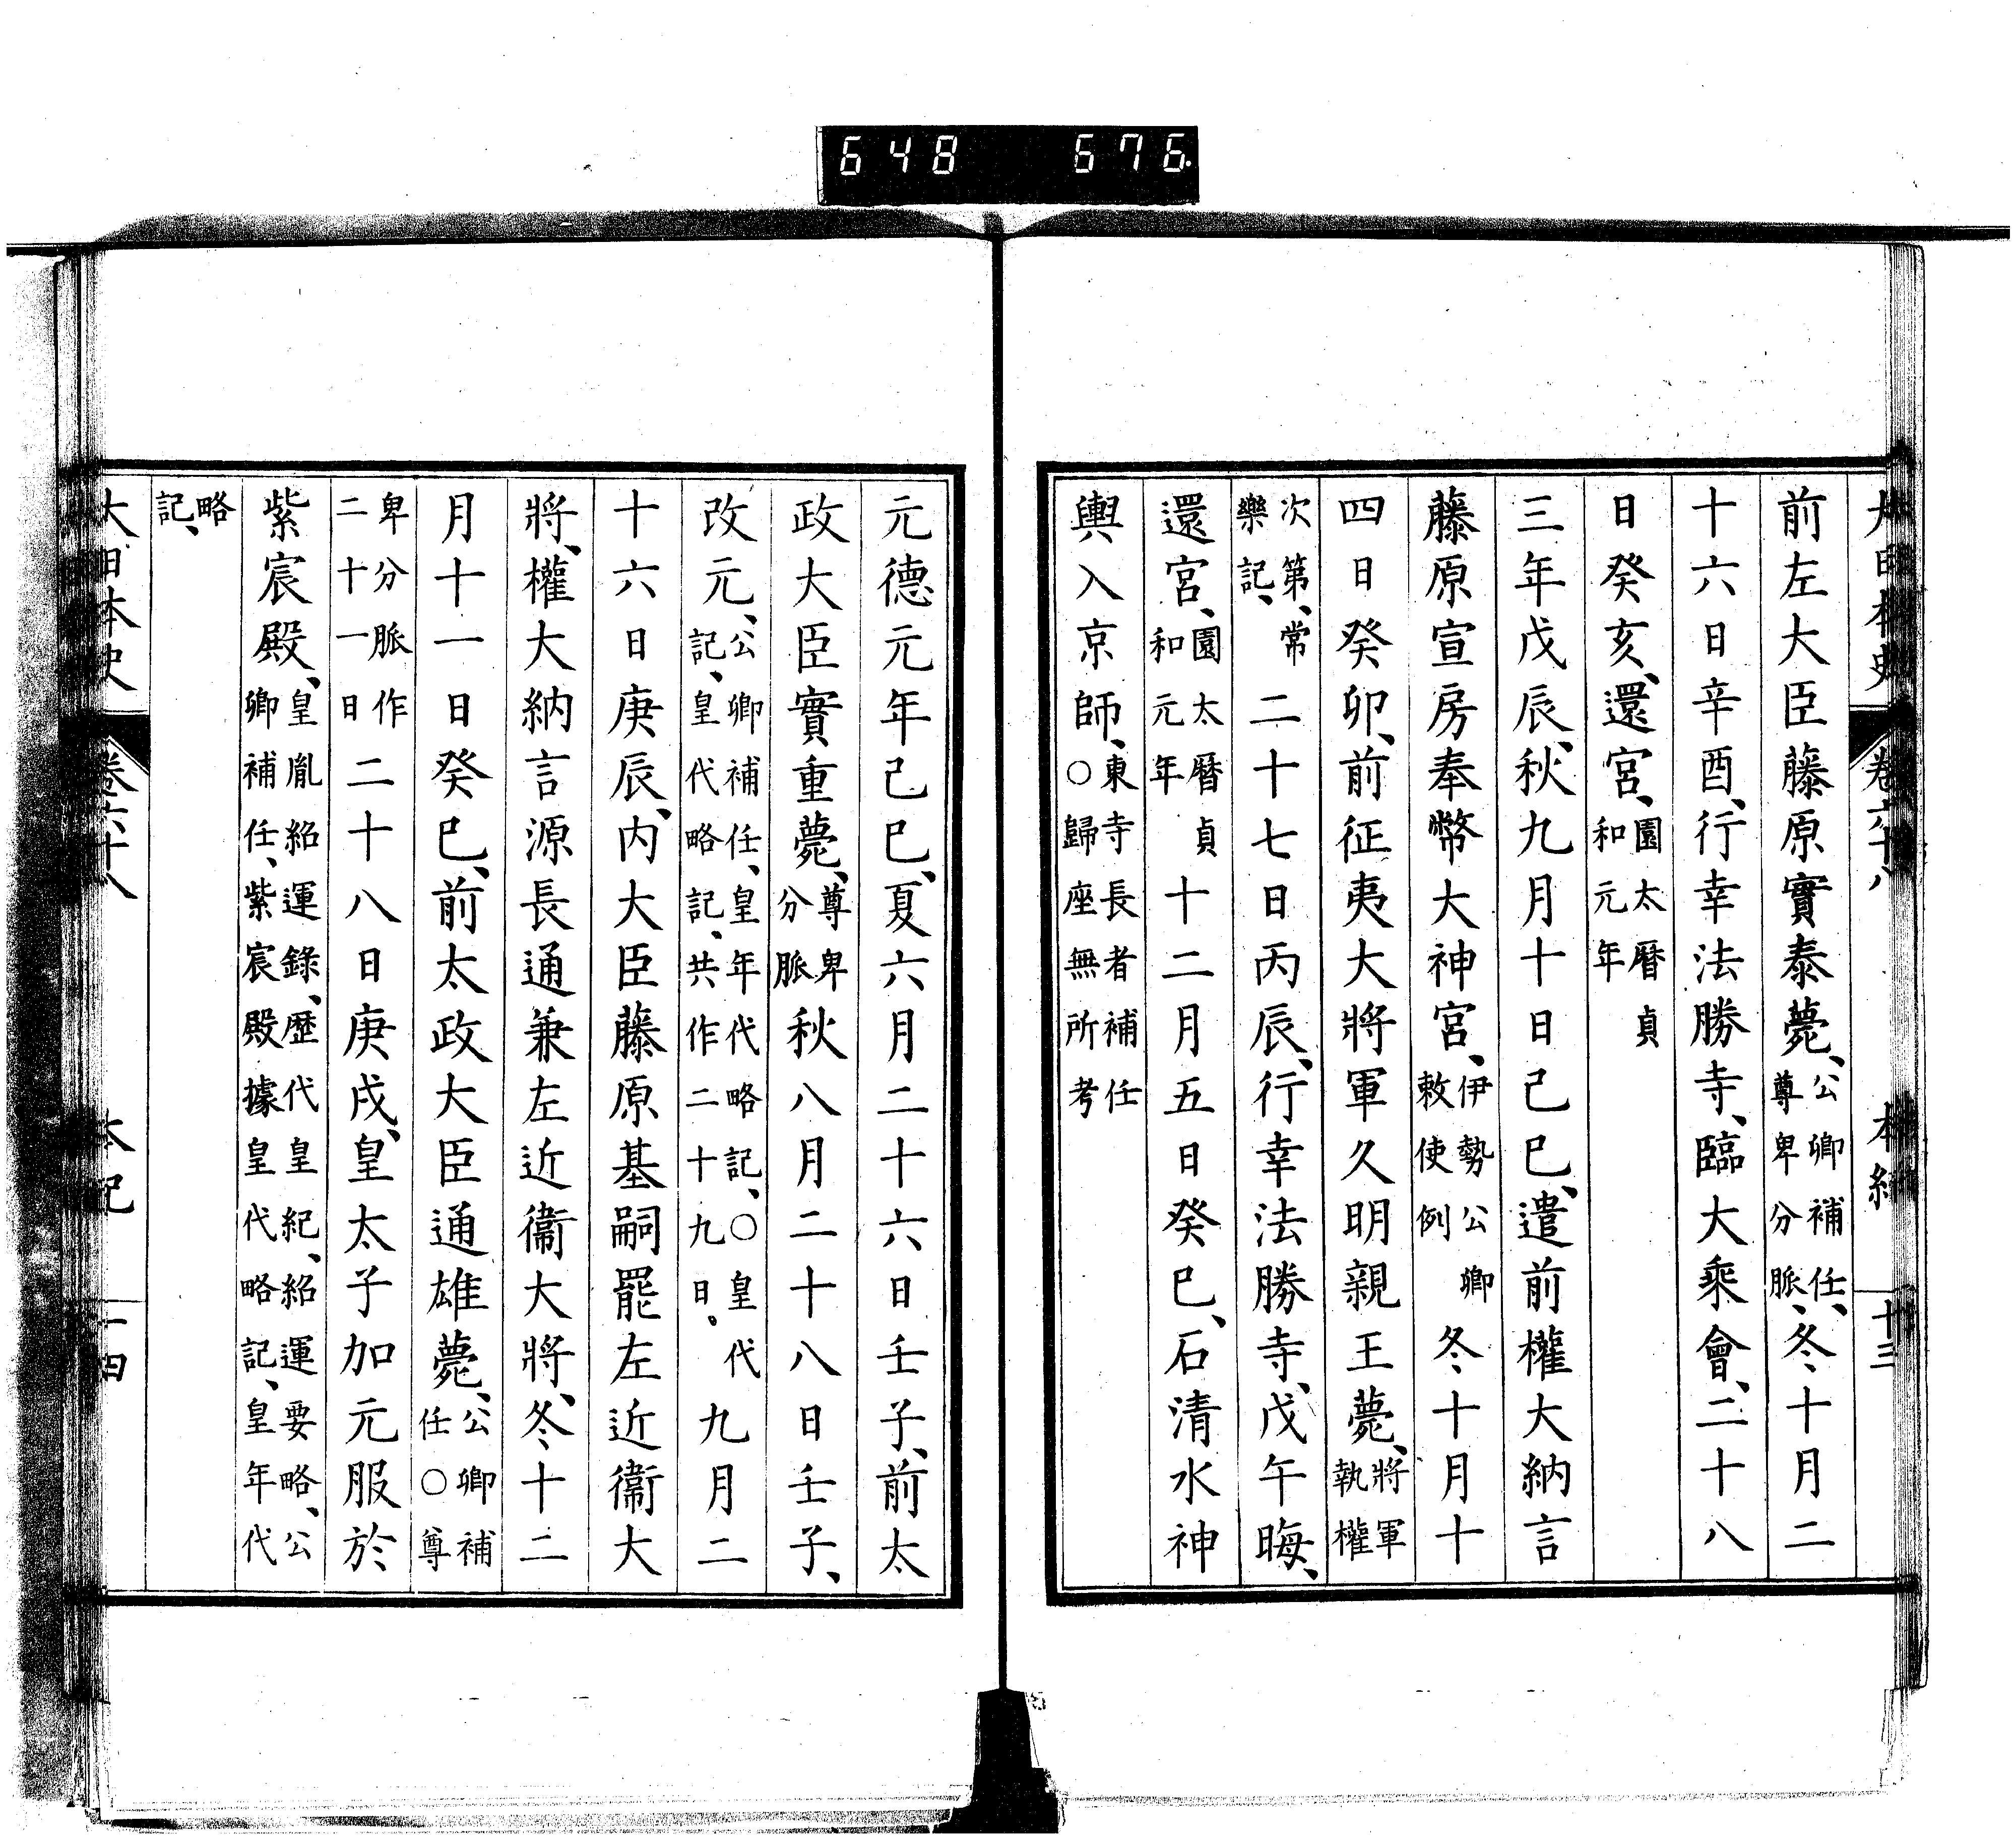 648 676.
大日本史 卷六十八 本紀 十三
前左大臣藤原實泰薨、公卿補任、尊卑分脈、冬十月二
十六日辛酉、行幸法勝寺、臨大乘會、二十八
日癸亥、還宮、園太曆貞和元年
三年戊辰、秋九月十日己巳、遣前權大納言
藤原宣房奉幣大神宮、伊勢公卿敕使例冬十月十
四日癸卯、前征夷大將軍久明親王薨、將軍執權
次第、常樂記、二十七日丙辰、行幸法勝寺、戊午晦、
還宮、園太曆貞和元年十二月五日癸巳、石清水神
輿入京師、東寺長者補任○歸座無所考
元德元年己巳、夏六月二十六日壬子、前太
政大臣實重薨、尊卑分脈秋八月二十八日壬子、
改元、公卿補任、皇年代略記、○皇代記、皇代略記、共作二十九日、九月二
十六日庚辰、內大臣藤原基嗣罷左近衞大
將、權大納言源長通兼左近衞大將、冬十二
月十一日癸巳、前太政大臣通雄薨、公卿補任○尊
卑分脈作二十一日二十八日庚戌、皇太子加元服於
紫宸殿、皇胤紹運錄、歷代皇紀、紹運要略、公卿補任、紫宸殿據皇代略記、皇年代
略記、
大日本史 卷六十八 本紀 十四